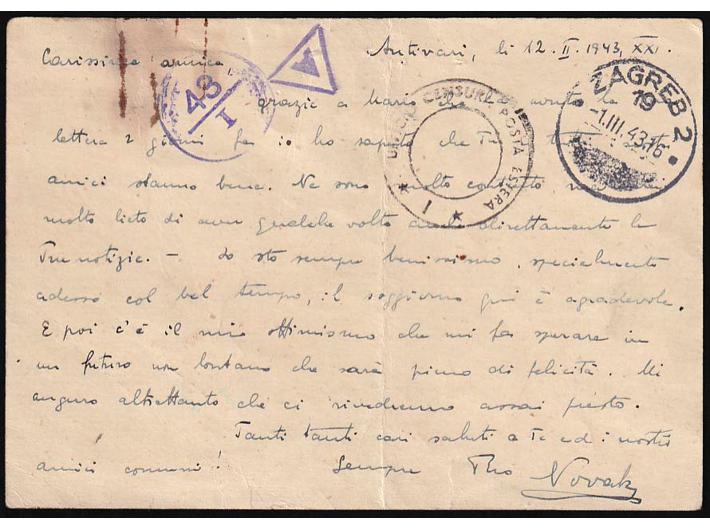 Antivari, li 12. II. 1943, XXI.
Carissima amica,
48
I
grazie a Mario che avuto la
lettera 2 giorni fa io ho saputo che Te
amici stanno bene. Ne sono molto contento
molto lieto di aver qualche volta direttamente le
Tue notizie. – Io sto sempre benissimo, specialmente
adesso col bel tempo, il soggiorno qui è agradevole.
E poi c'è il mio ottimismo che mi fa sperare in
un futuro non lontano che sarà pieno di felicità. Mi
auguro altrettanto che ci rivedremo assai presto.
Tanti tanti cari saluti a Te ed i nostri
amici comuni! Sempre Tuo Novak
CENSURA POSTA ESTERA
* 1 *
ZAGREB 2
19
-1.III.43.16